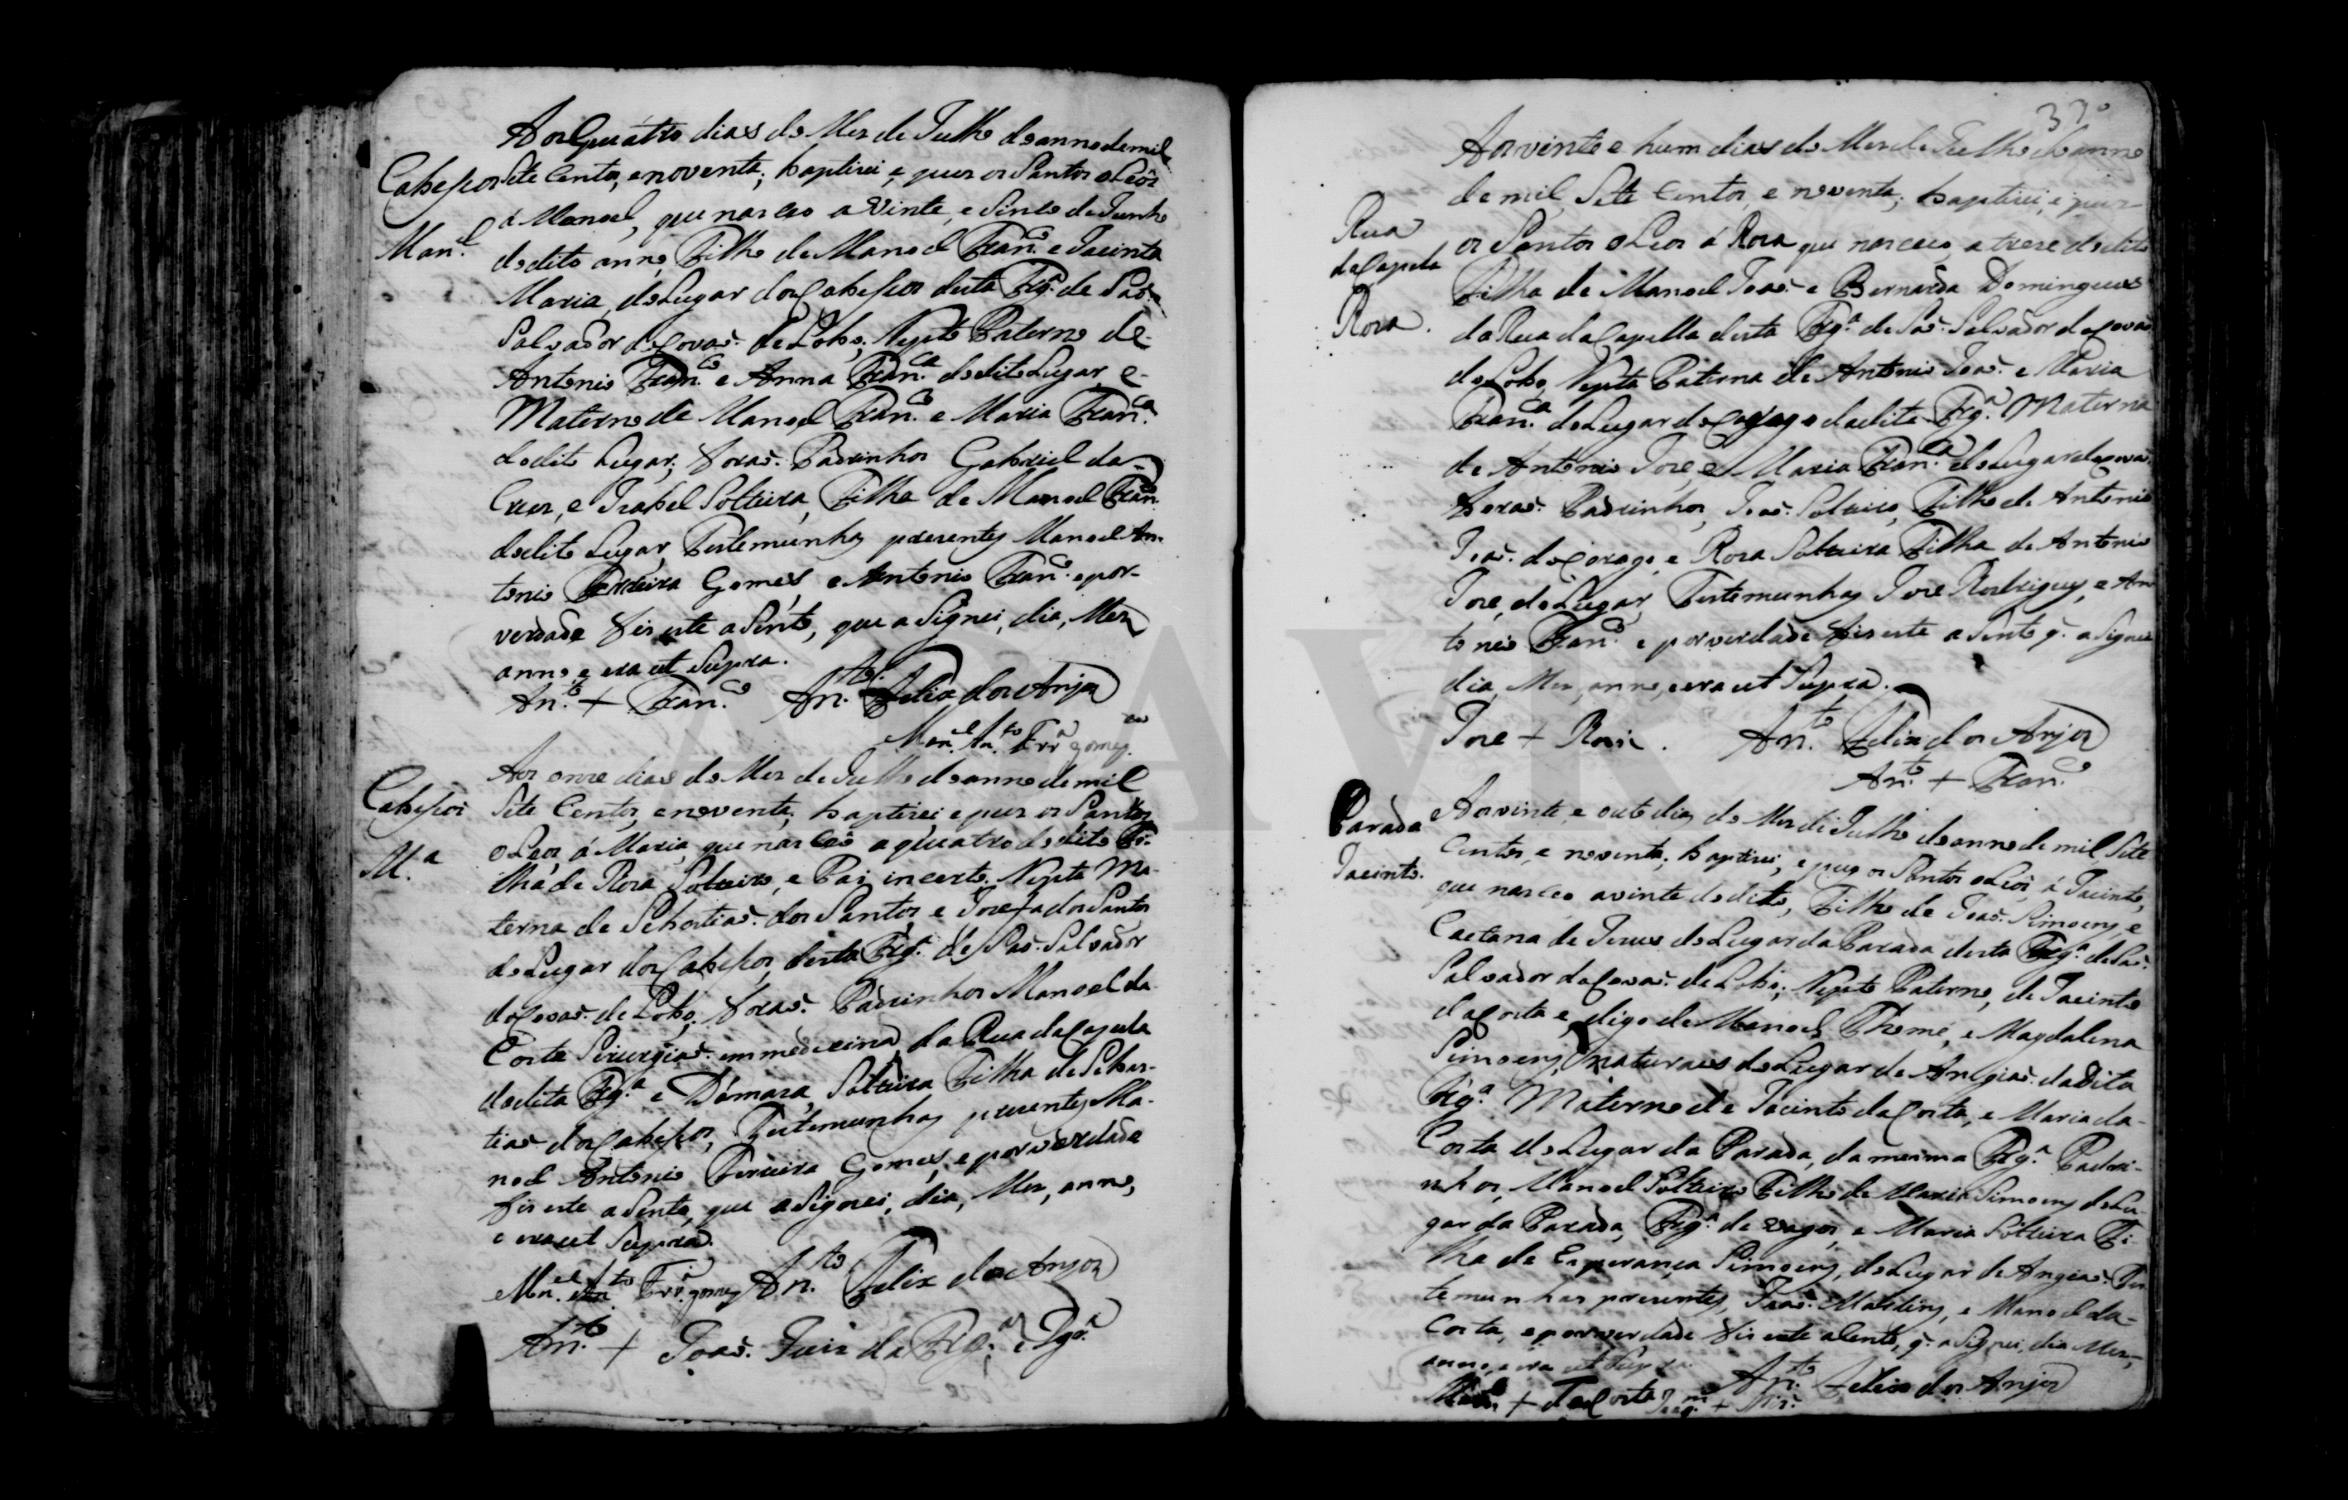 Aos quatro dias do Mes de Julho do anno de mil
Cabessos
Sete Centos, e noventa; baptizei, e puz os Santos oLeos
Man.el
á Manoel, que nasceo a Vinte, e Sinco de Junho
do dito anno, Filho de Manoel Fran.co e Jacinta
Maria, do Lugar dos Cabessos desta Frg.a de Saõ
Salvador do Covaõ de Lobo, Nepto Paterno de
Antonio Fran.co e Anna Fran.ca do dito Lugar, e
Materno de Manoel Fran.co e Maria Fran.ca
do dito Lugar; foraõ Padrinhos Gabriel da
Cruz, e Izabel Solteira, Filha de Manoel Fran.co
do dito Lugar, Testemunhas prezentes Manoel An-
tonio Ferreira Gomes, e Antonio Fran.co e por-
verdade fis este aSento, que aSignei, dia, Mez
anno e era ut Supra.
An.to + Fran.co An.to Felix dos Anjos
Man.el An.to Frr.a gomes
Aos onze dias do Mes de Julho do anno de mil
Cabessos
Sete Centos, e noventa; baptizei e puz os Santos
M.a
oLeos, á Maria, que nasceo a quatro do dito Fi-
lha de Roza Solteira, e Pai incerto. Nepta Ma-
terna de Sebastiaõ dos Santos, e Josefa dos Santos
do Lugar dos Cabessos, desta Frg.a de Saõ Salvador
do Covaõ de Lobo; foraõ Padrinhos Manoel da
Costa Sirurgiaõ em medecina da Rua da Capela
da dita Frg.a e Dámaza Solteira Filha de Sebas-
tiaõ dos Cabessos, Testemunhas prezentes Ma-
noel Antonio Ferreira Gomes, e por verdade
fis este aSento, que aSignei, dia, Mez, anno,
e era ut Supra.
Mn.el An.to Frr.a gomes An.to Felix dos Anjos
An.to + Joaõ Juiz da Frg.a
370
Aos vinte e hum dias do Mes de Julho do anno
de mil, Sete Centos, e noventa; baptizei, e puz
Rua
da Capela
os Santos oLeos á Roza que nasceo, a treze do dito
Filha de Manoel Joaõ e Bernarda Domingues
Roza.
da Rua da Capella desta Frg.a de Saõ Salvador do Covaõ
de Lobo, Nepta Paterna de Antonio Joaõ e Maria
Fran.ca do Lugar do da dita Frg.a Materna
de Antonio Joze, e Maria Fran.ca do Lugar do Covaõ
foraõ Padrinhos, Joaõ Solteiro, Filho de Antonio
Joaõ do e Roza Solteira Filha de Antonio
Joze, do Lugar, Testemunhas Joze Rodrigues, e An-
tonio Fran.co e por verdade fis este aSento q. aSignei
dia, Mez, anno, e era ut Supra.
Joze + An.to Felix dos Anjos
An.to + Fran.co
Parada
Aos vinte, e outo dias do Mes de Julho do anno de mil Sete
Centos, e noventa; baptizei, e puz os Santos oLeos á Jacinto,
Jacinto.
que nasceo a vinte do dito, Filho de Joaõ Simoens, e
Caetana de Jezus do Lugar da Parada desta Frg.a de Saõ
Salvador do Covaõ de Lobo; Nepto Paterno, de Jacinto
da Costa e, digo de Manoel Thomé, e Magdalena
Simoens, naturaes do Lugar de Angiaõ da dita
Frg.a Materno de Jacinto da Costa, e Maria da-
Costa do Lugar da Parada, da mesma Frg.a Padri-
nhos, Manoel Solteiro Filho de Maria Simoens do Lu-
gar da Parada, Frg.a de vagos, e Maria Solteira Fi-
lha de Esperança Simoens, do Lugar de Angiaõ Tes-
temunhas prezentes, Joaõ Martins, e Manoel da-
Costa, e por verdade fis este aSento, q. aSignei, dia Mez,
anno, e era ut Supra. An.to Felix dos Anjos
+ da Costa +